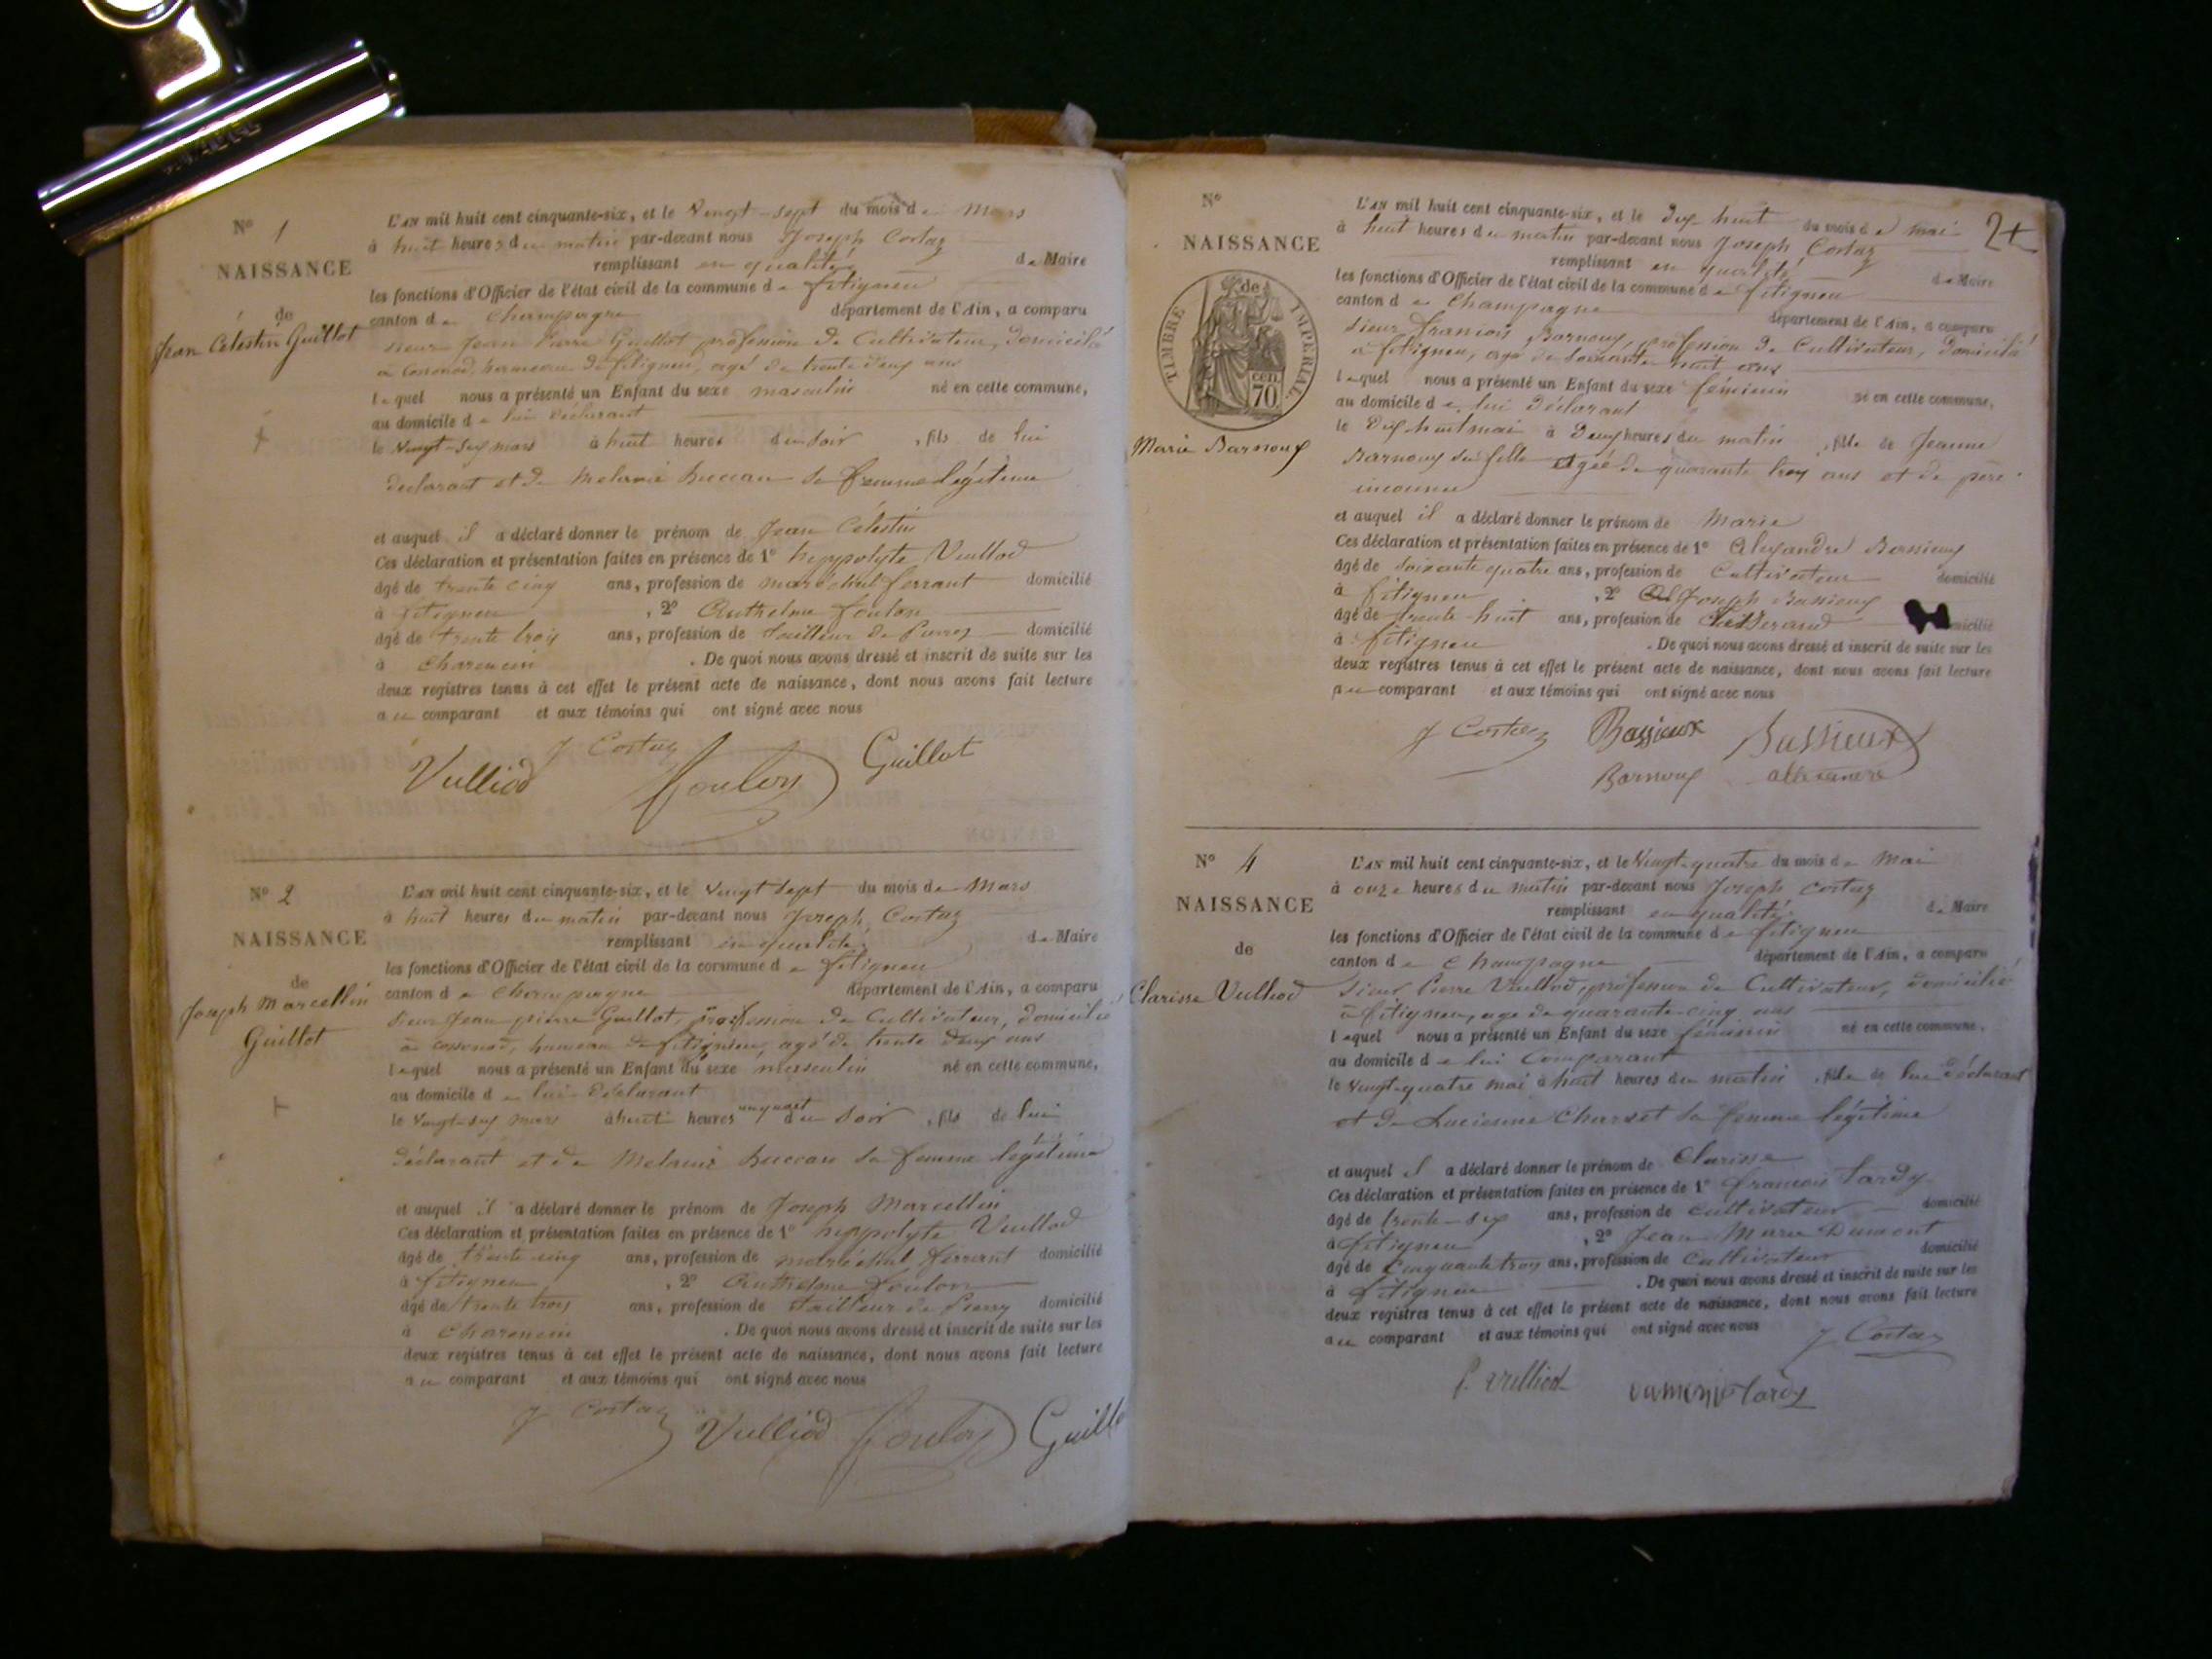 N° 1
NAISSANCE
de
Jean Célestin Guillot
L'AN mil huit cent cinquante-six, et le Vingt-sept du mois de Mars
à huit heures du matin par-devant nous Joseph Costaz
remplissant en qualité de Maire
les fonctions d'Officier de l'état civil de la commune de fitignieu
canton de Champagne département de l'Ain, a comparu
sieur Jean Pierre Guillot, profession de Cultivateur, domicilié
à Cossonod, hameau de fitignieu, agé de trente deux ans
lequel nous a présenté un Enfant du sexe masculin né en cette commune,
au domicile de lui déclarant
le vingt-six mars à huit heures du soir, fils de lui
déclarant et de Melanie Buccan sa femme légitime
et auquel il a déclaré donner le prénom de Jean Célestin
Ces déclaration et présentation faites en présence de 1° hyppolyte Vulliod
âgé de trente cinq ans, profession de maréchal ferrant domicilié
à fitignieu, 2° Anthelme foulon
âgé de trente trois ans, profession de tailleur de Pierres domicilié
à Charencin. De quoi nous avons dressé et inscrit de suite sur les
deux registres tenus à cet effet le présent acte de naissance, dont nous avons fait lecture
au comparant et aux témoins qui ont signé avec nous
J Costaz
Vulliod foulon Guillot
N° 2
NAISSANCE
de
Joseph Marcellin
Guillot
L'AN mil huit cent cinquante-six, et le Vingt sept du mois de Mars
à huit heures du matin par-devant nous Joseph Costaz
remplissant en qualité de Maire
les fonctions d'Officier de l'état civil de la commune de fitignieu
canton de Champagne département de l'Ain, a comparu
sieur Jean pierre Guillot, profession de Cultivateur, domicilié
à cossonod, hameau de fitignieu, agé de trente deux ans
lequel nous a présenté un Enfant du sexe masculin né en cette commune,
au domicile de lui déclarant
le vingt-six mars à huit heures un quart du soir, fils de lui
déclarant et de Melanie Buccan sa femme légitime
et auquel il a déclaré donner le prénom de Joseph Marcellin
Ces déclaration et présentation faites en présence de 1° hyppolyte Vulliod
âgé de trente cinq ans, profession de maréchal ferrant domicilié
à fitignieu, 2° Anthelme foulon
âgé de trente trois ans, profession de tailleur de Pierres domicilié
à Charencin. De quoi nous avons dressé et inscrit de suite sur les
deux registres tenus à cet effet le présent acte de naissance, dont nous avons fait lecture
au comparant et aux témoins qui ont signé avec nous
J Costaz Vulliod foulon Guillo
2
N°
NAISSANCE
de
TIMBRE IMPERIAL
70 cen.
Marie Barnoux
L'AN mil huit cent cinquante-six, et le Dix-huit du mois de mai
à huit heures du matin par-devant nous Joseph Costaz
remplissant en qualité de Maire
les fonctions d'Officier de l'état civil de la commune de fitignieu
canton de Champagne département de l'Ain, a comparu
sieur francois Barnoux, profession de Cultivateur, domicilié
à fitignieu, agé de soixante huit ans
lequel nous a présenté un Enfant du sexe féminin né en cette commune,
au domicile de lui déclarant
le Dix huit mai à Deux heures du matin, fille de Jeanne
Barnoux sa fille agée de quarante trois ans et de père
inconnu
et auquel il a déclaré donner le prénom de Marie
Ces déclaration et présentation faites en présence de 1° Alexandre Bassieux
âgé de soixante quatre ans, profession de Cultivateur domicilié
à fitignieu, 2° Joseph Bassieux
âgé de trente-huit ans, profession de tisserand micilié
à fitignieu. De quoi nous avons dressé et inscrit de suite sur les
deux registres tenus à cet effet le présent acte de naissance, dont nous avons fait lecture
au comparant et aux témoins qui ont signé avec nous
J Costaz Bassieux Bassieux
Barnoux allexandre
N° 4
NAISSANCE
de
Clarisse Vulliod
L'AN mil huit cent cinquante-six, et le Vingt-quatre du mois de Mai
à onze heures du matin par-devant nous Joseph Costaz
remplissant en qualité de Maire
les fonctions d'Officier de l'état civil de la commune de fitignieu
canton de Champagne département de l'Ain, a comparu
sieur Pierre Vulliod, profession de Cultivateur, domicilié
à fitignieu, agé de quarante-cinq ans
lequel nous a présenté un Enfant du sexe féminin né en cette commune,
au domicile de lui Comparant
le Vingt-quatre mai à huit heures du matin, fille de lui déclarant
et de Lucienne Charvet sa femme légitime
et auquel il a déclaré donner le prénom de Clarisse
Ces déclaration et présentation faites en présence de 1° francois Tardy
âgé de trente-six ans, profession de cultivateur domicilié
à fitignieu, 2° Jean Marie Dumont
âgé de Cinquante trois ans, profession de Cultivateur domicilié
à fitignieu. De quoi nous avons dressé et inscrit de suite sur les
deux registres tenus à cet effet le présent acte de naissance, dont nous avons fait lecture
au comparant et aux témoins qui ont signé avec nous J Costaz
P. vulliod Tardy